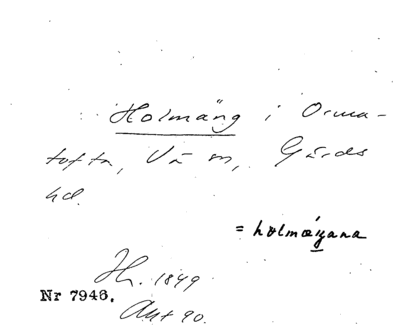 Holmäng i Orma-
tofta, Vä sn, Gärds
hd.
= holmæŋana
H. 1849
Nr 7946.
Akt 90.